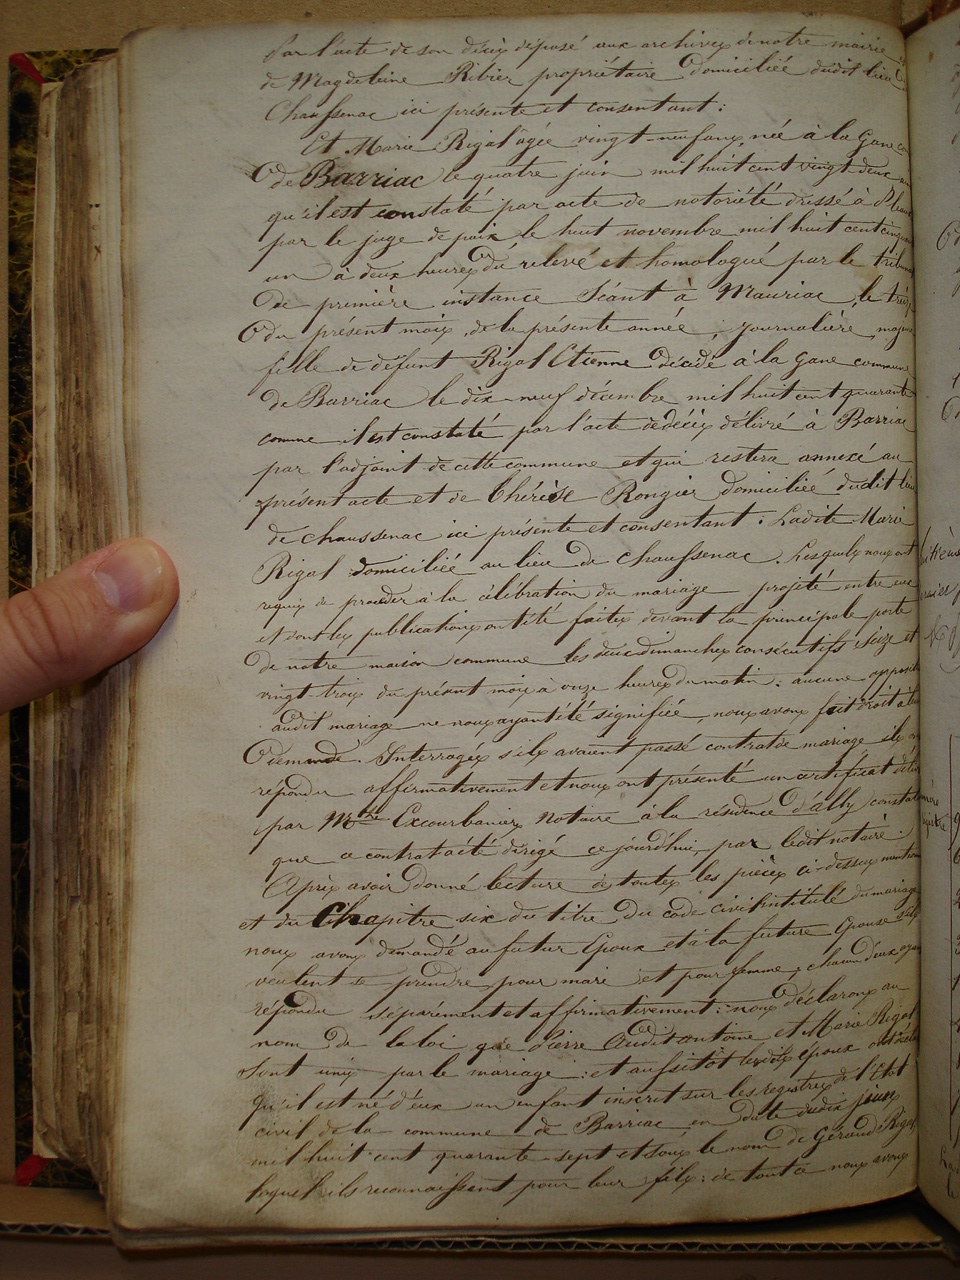 par l'acte de son décix déposé aux archivex de notre mairie et
de Magdeleine Ribier propriétaire domiciliée dudit lieu de
Chaussenac ici présente et consentant :
Et Marie Rigal âgée vingt-neuf anx, née à la Gane com
de Barriac le quatre juin mil huit cent vingt deux
qu'il est constaté par acte de notoriété dressé à Pleaux
par le juge de paix le huit novembre mil huit cent cinquante
un à deux heurex du relevé et homologué par le tribunal
de première instance Séant à Mauriac, le treize
du présent moix, de la présente année ; journalière, majeure
fille de défunt Rigal Etienne décédé à la Gane commune
de Barriac le dix-neuf décembre mil huit cent quarante
comme il est constaté par l'acte de décix délivré à Barriac
par l'adjoint de cette commune et qui restera annexé au
présent acte et de Thérèse Rongier domiciliée dudit lieu
de chaussenac ici présente et consentant : Ladite Marie
Rigal domiciliée au lieu de chaussenac. Lesquelx noux ont
requix de procéder à la célébration du mariage projeté entre eux
et dont lex publicationx ont été faitex devant la principale porte
de notre maison commune les deux dimanchex consécutifs seize et
vingt-troix du présent moix à onze heurex du matin : aucune opposition
audit mariage ne noux ayant été signifiée, noux avonx fait droit à leur
demande. Interrogéx s'ilx avaient passé contrat de mariage ilx ont
répondu affirmativement et noux ont présenté un certificat délivré
par Mtre Escourbanier Notaire à la résidence d'ally constatant
que ce contrat a été dirigé ce jourd'hui, par ledit notaire.
Aprèx avoir donné lecture de toutex les piècex ci-dessux mention
et du Chapitre six du titre du code civil intitulé du mariage
noux avonx demandé au futur Epoux et à la future Epouse s'ilx
veulent se prendre pour mari et pour femme, chacun d'eux ayant
répondu séparément et affirmativement : noux déclaronx au
nom de la loi que Pierre Audit antoine et Marie Rigal
sont unix par le mariage : et aussitôt lesdits époux ont déclaré
qu'il est né d'eux un enfant inscrit sur les registrex de l'Etat
civil de la commune de Barriac en date du dix juin
mil huit cent quarante-sept et soux le nom de Géraud Rigal
lequel ils reconnaissent pour leur filx : de tout ce noux avonx